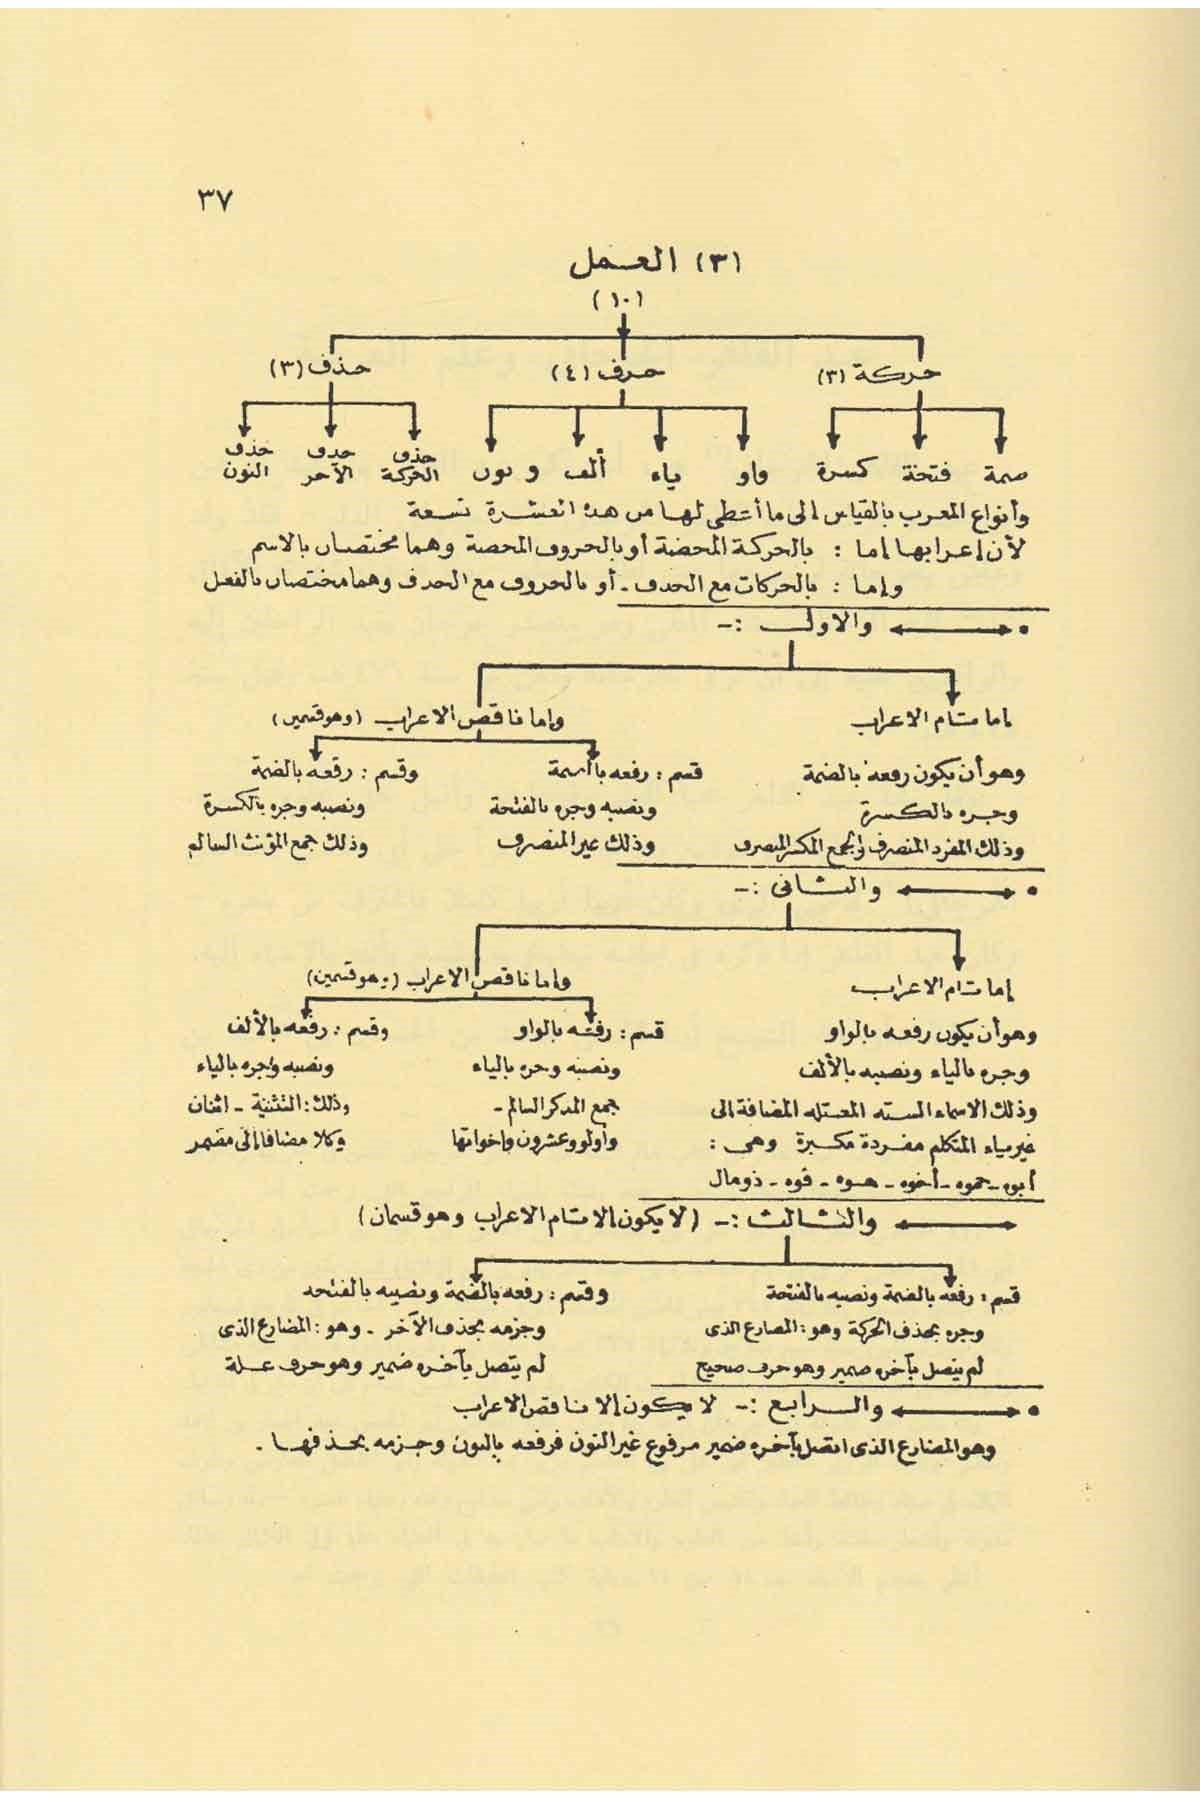 ٣٧
(٣) العمل
(١٠)
حركة (٣) حرف (٤) حذف (٣)
ضمة فتحة كسرة واو ياء ألف و نون حذف الحركة حذف الآخر حذف النون
وأنواع المعرب بالقياس إلى ما أعطى لها من هذه العشرة تسعة
لأن إعرابها إما : بالحركة المحضة أو بالحروف المحضة وهما مختصان بالاسم
وإما : بالحركات مع الحذف - أو بالحروف مع الحذف وهما مختصان بالفعل
والأول :-
إما تام الاعراب وإما ناقص الاعراب (وهو قسمين)
وهو أن يكون رفعه بالضمة قسم : رفعه بالضمة وقسم : رفعه بالضمة
وجره بالكسرة ونصبه وجره بالفتحة ونصبه وجره بالكسرة
وذلك المفرد المنصرف والجمع المكسر المنصرف وذلك غير المنصرف وذلك جمع المؤنث السالم
والثانى :-
إما تام الاعراب وإما ناقص الاعراب (وهو قسمين)
وهو أن يكون رفعه بالواو قسم : رفعه بالواو وقسم : رفعه بالألف
وجره بالياء ونصبه بالألف ونصبه وجره بالياء ونصبه وجره بالياء
وذلك الاسماء الستة المعتلة المضافة إلى جمع المذكر السالم - وذلك : التثنية - اثنان
غير ياء المتكلم مفردة مكبرة وهى : وأولو وعشرون وإخواتها وكلا مضافا إلى مضمر
أبوه - حموه - أخوه - هنوه - فوه - ذومال
والثالث :- (لا يكون إلا تام الاعراب وهو قسمان)
قسم : رفعه بالضمة ونصبه بالفتحة وقسم : رفعه بالضمة ونصبه بالفتحه
وجره بحذف الحركة وهو : المضارع الذى وجزمه بحذف الآخر - وهو : المضارع الذى
لم يتصل بآخره ضمير وهو حرف صحيح لم يتصل بآخره ضمير وهو حرف علة
والرابع :- لا يكون إلا ناقص الاعراب
وهو المضارع الذى اتصل بآخره ضمير مرفوع غير النون فرفعه بالنون وجزمه بحذفها .